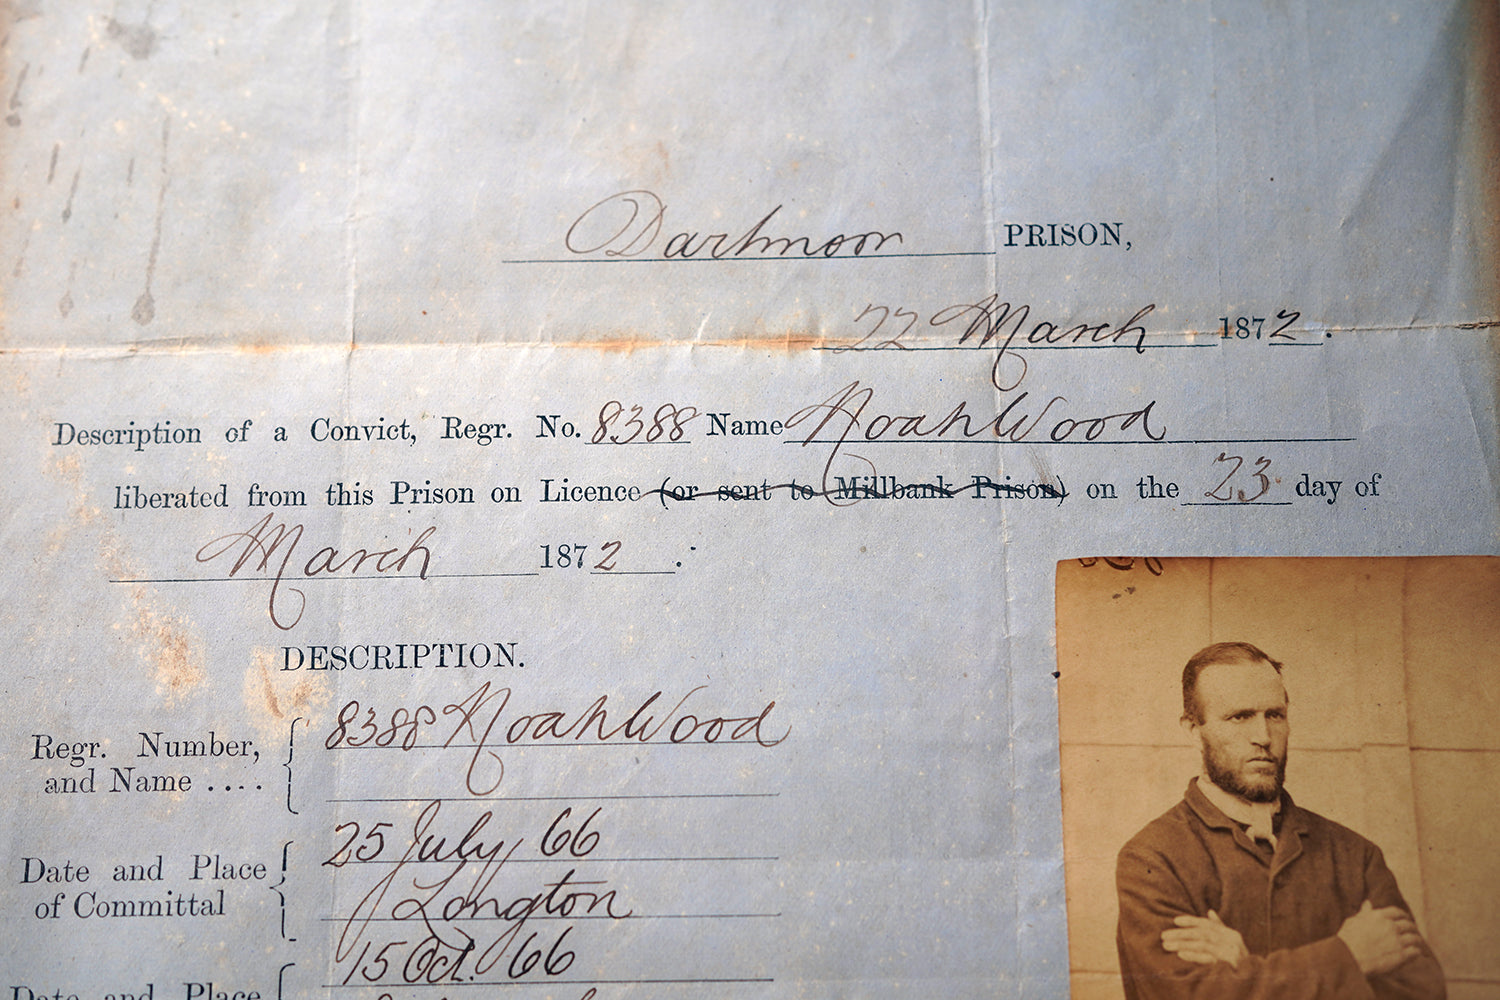 Dartmoor PRISON,
22 March 1872.
Description of a Convict, Regr. No. 8388 Name Noah Wood
liberated from this Prison on Licence (or sent to Millbank Prison) on the 23 day of
March 1872.
DESCRIPTION.
Regr. Number, and Name .... 8388 Noah Wood
Date and Place of Committal 25 July 66
Longton
15 Oct. 66
Date and Place